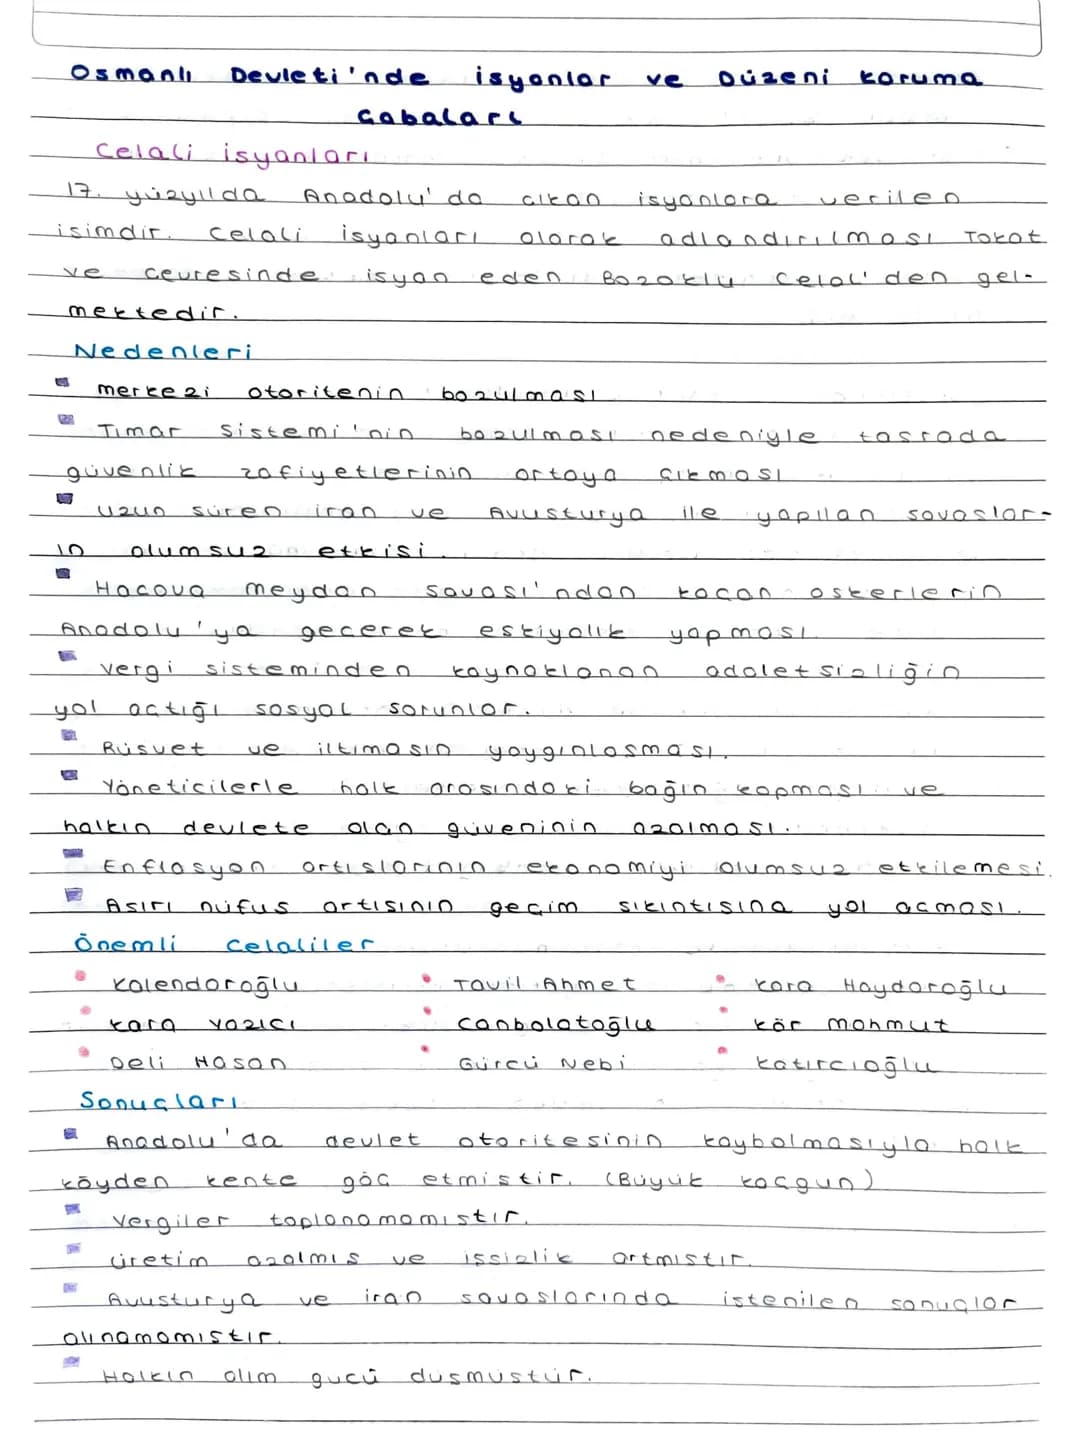 Osmanlı Devleti'nde isyanlar ve Düzeni koruma
Çabaları
Celali isyanları
17. yüzyılda Anadolu'da çıkan isyanlara verilen
isimdir. Celali isyanları olarak adlandırılması Tokat
ve çevresinde isyan eden Bozoklu Celal'den gel-
mektedir.
Nedenleri
merkezi otoritenin bozulması
Tımar Sistemi'nin bozulması nedeniyle taşrada
güvenlik zafiyetlerinin ortaya çıkması
Uzun süren iran ve Avusturya ile yapılan savaşlar-
ın olumsuz etkisi.
Haçova meydan savaşı'ndan kaçan askerlerin
Anadolu'ya geçerek eşkiyalık yapması
Vergi sisteminden kaynaklanan adaletsizliğin
yol açtığı sosyal sorunlar.
Rüşvet ve iltimasın yaygınlaşması.
Yöneticilerle halk arasındaki bağın kopması ve
halkın devlete olan güveninin azalması.
Enflasyon artışlarının ekonomiyi olumsuz etkilemesi.
Aşırı nüfus artışının geçim sıkıntısına yol açması.
Önemli Celaliler
Kalendaroğlu Tavil Ahmet Kara Haydaroğlu
Kara Yazıcı Canbolatoğlu Kör mahmut
Deli Hasan Gürcü Nebi Katırcıoğlu
Sonuçları
Anadolu'da devlet otoritesinin kaybolmasıyla halk
köyden kente göç etmiştir. (Büyük kaçgun)
Vergiler toplanamamıştır.
üretim azalmış ve işsizlik artmıştır.
Avusturya ve iran savaşlarında istenilen sonuçlar
alınamamıştır.
Halkın alım gücü düşmüştür.